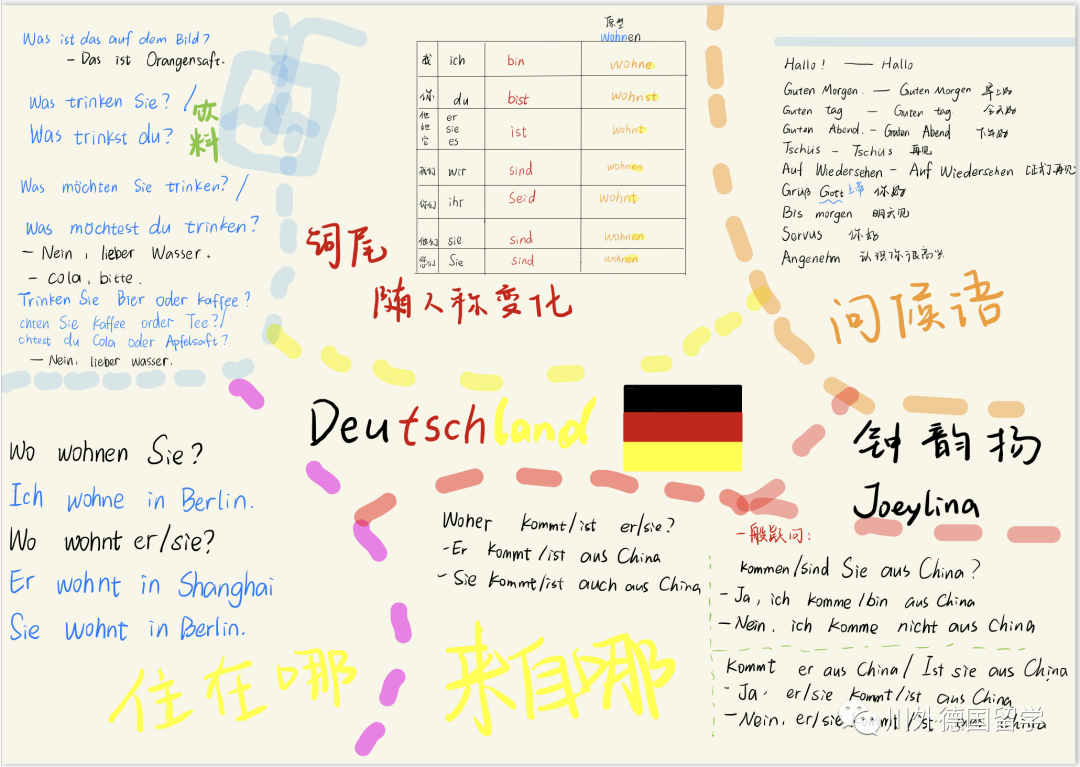 Was ist das auf dem Bild?
- Das ist Orangensaft.
Was trinken Sie? /
Was trinkst du?
饮料
Was möchten Sie trinken? /
Was möchtest du trinken?
- Nein, lieber Wasser.
- cola, bitte.
Trinken Sie Bier oder kaffee?
chten Sie kaffee order Tee?/
chtest du Cola oder Apfelsaft?
- Nein, lieber wasser.
原型
wohnen
我 ich bin wohne
你 du bist wohnst
他 er
她 sie ist wohnt
它 es
我们 wir sind wohnen
你们 ihr Seid wohnt
他们 sie sind wohnen
您们 Sie sind wohnen
词尾
随人称变化
Hallo! — Hallo
Guten Morgen. — Guten Morgen 早上好
Guten tag — Guten tag 今天好
Guten Abend. - Guten Abend 下午好
Tschüs - Tschüs 再见
Auf Wiedersehen - Auf Wiedersehen 让我们再见
Grüß Gott 上帝 你好
Bis morgen 明天见
Servus 你好
Angenehm 认识你很高兴
问候语
Deutschland
钟韵扬
Joeylina
Wo wohnen Sie?
Ich wohne in Berlin.
Wo wohnt er/sie?
Er wohnt in Shanghai
Sie wohnt in Berlin.
住在哪
Woher kommt/ist er/sie?
- Er kommt/ist aus China
- Sie kommt/ist auch aus China
来自哪
一般疑问:
kommen/sind Sie aus China?
- Ja, ich komme/bin aus China
- Nein, ich komme nicht aus China
kommt er aus China/ Ist sie aus China
- Ja, er/sie kommt/ist aus China
- Nein, er/sie kommt/ist aus China
川外德国留学